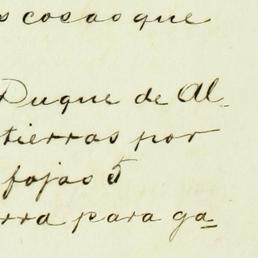 s cosas que
Duque de Al-
tierras por
fojas 5
rra para ga-